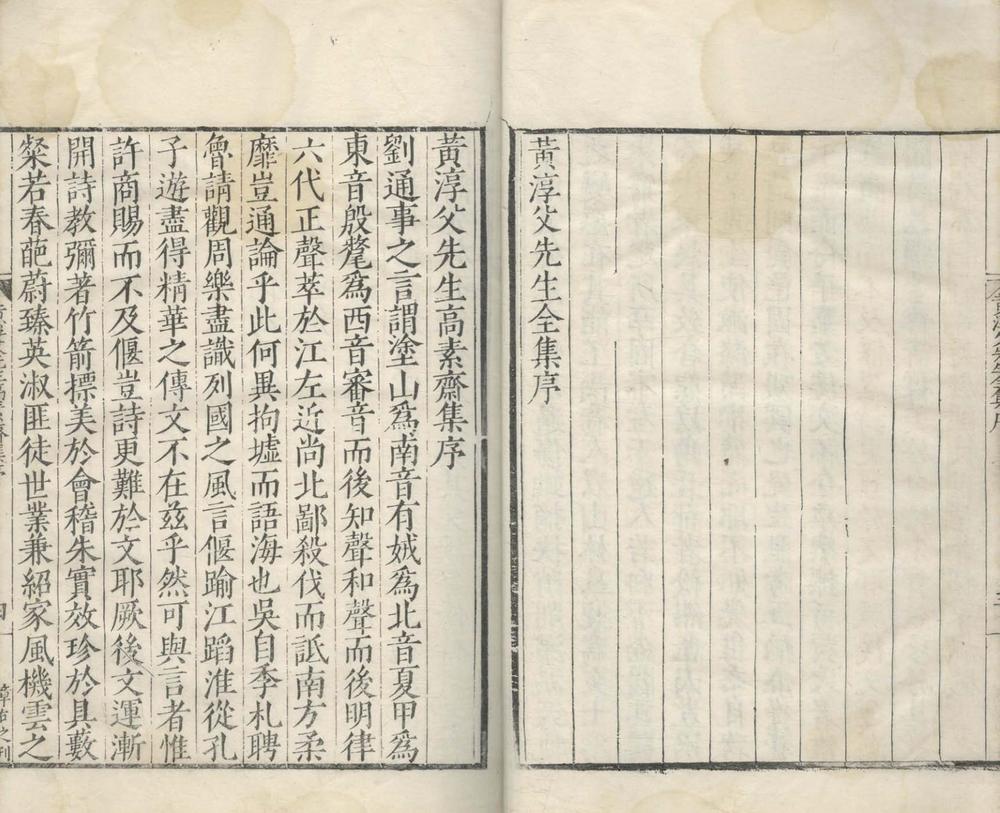 黃淳父先生全集序
黃淳父先生高素齋集序
劉通事之言謂塗山爲南音有娀爲北音夏甲爲
東音殷氂爲西音審音而後知聲和聲而後明律
六代正聲萃於江左近尚北鄙殺伐而詆南方柔
靡豈通論乎此何異拘墟而語海也吳自季札聘
魯請觀周樂盡識列國之風言偃踰江蹈淮從孔
子遊盡得精華之傳文不在兹乎然可與言者惟
許商賜而不及偃豈詩更難於文耶厥後文運漸
開詩教彌著竹箭標美於會稽朱實效珍於具藪
粲若春葩蔚臻英淑匪徒世業兼紹家風機雲之
四
章右之刊